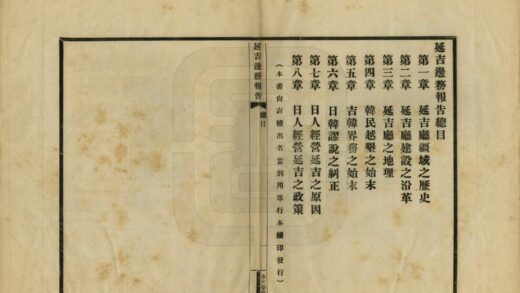 延吉邊務報告總目
第一章 延吉廳疆域之歷史
第二章 延吉廳建設之沿革
第三章 延吉廳之地理
第四章 韓民越墾之始末
第五章 吉韓界務之始末
第六章 日韓謬說之糾正
第七章 日人經營延吉之原因
第八章 日人經營延吉之政策
延吉邊務報告
總目